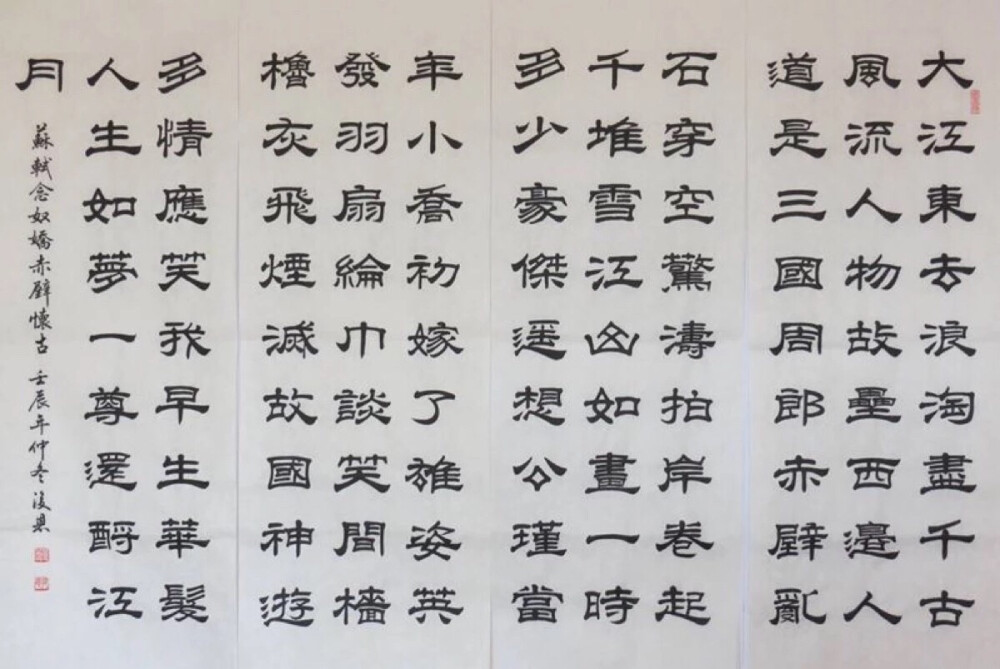 大江東去浪淘盡千古
風流人物故壘西邊人
道是三國周郎赤壁亂
石穿空驚濤拍岸卷起
千堆雪江山如畫一時
多少豪傑遥想公瑾當
年小喬初嫁了雄姿英
發羽扇綸巾談笑間檣
櫓灰飛煙滅故國神遊
多情應笑我早生華髮
人生如夢一尊還酹江
月
蘇軾念奴嬌赤壁懷古 壬辰年仲冬